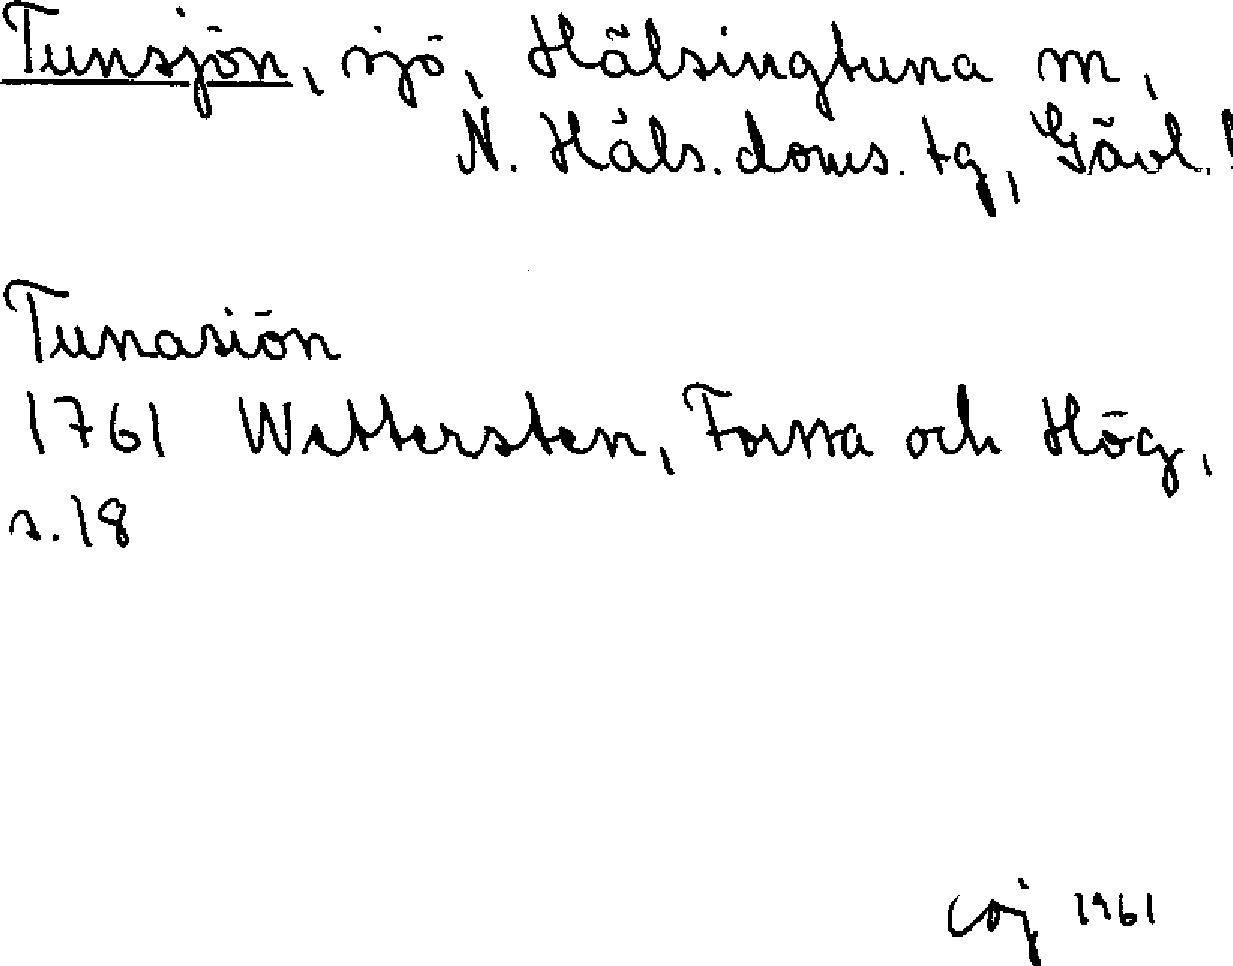 Tunsjön, sjö, Hälsingtuna sn,
N. Häls. doms. tg, Gävl. l
Tunasiön
1761 Wettersten, Forssa och Hög,
s. 18
coj 1961